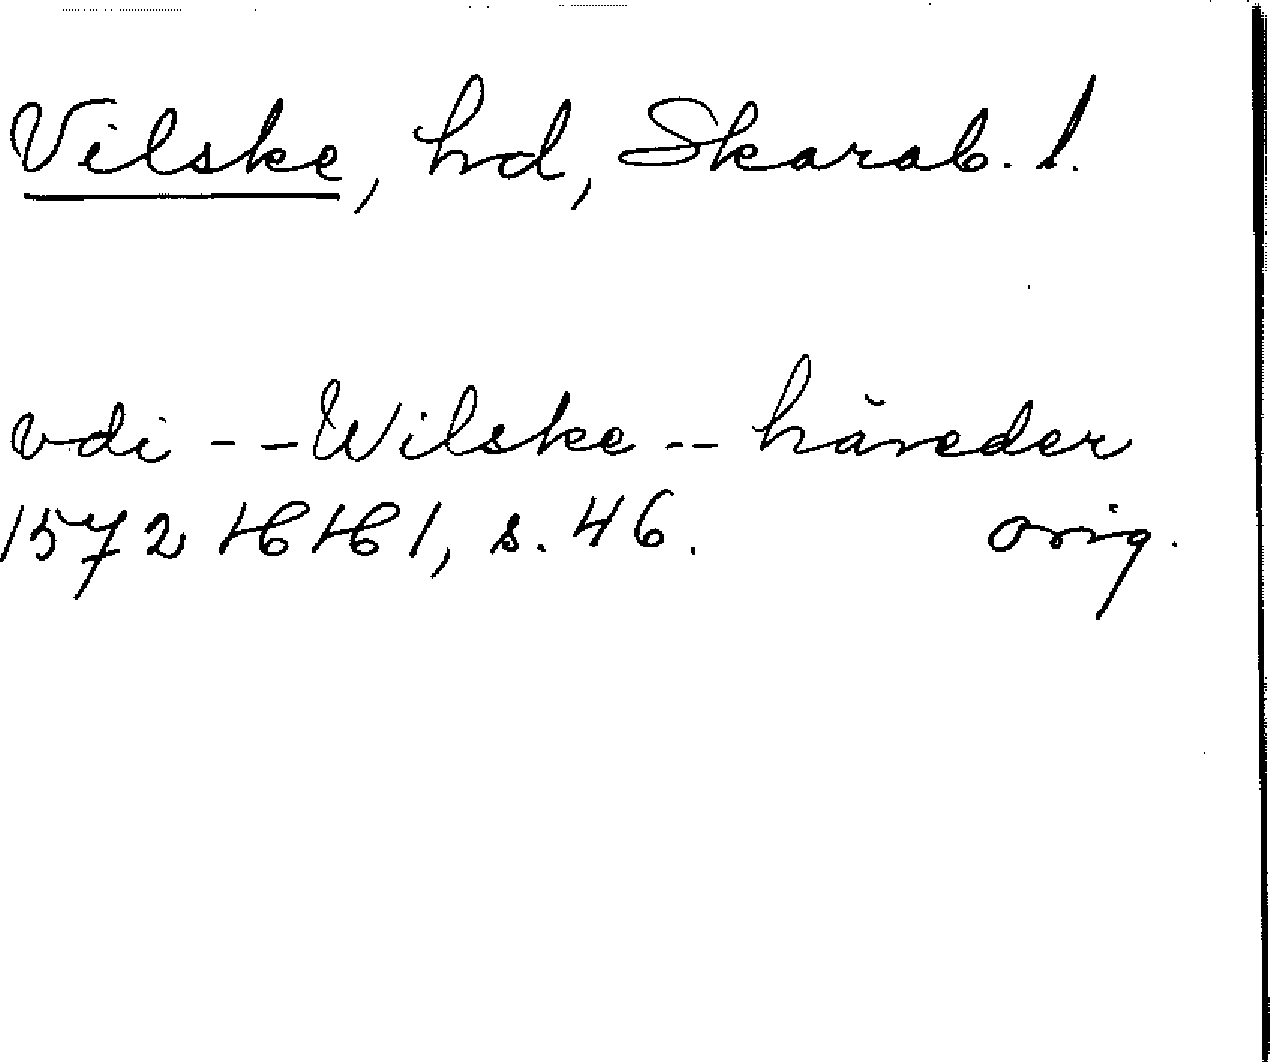 Vilske, hd, Skarab. l.
vdi -- Wilske -- häreder
1572 HH 1, s. 46. orig.